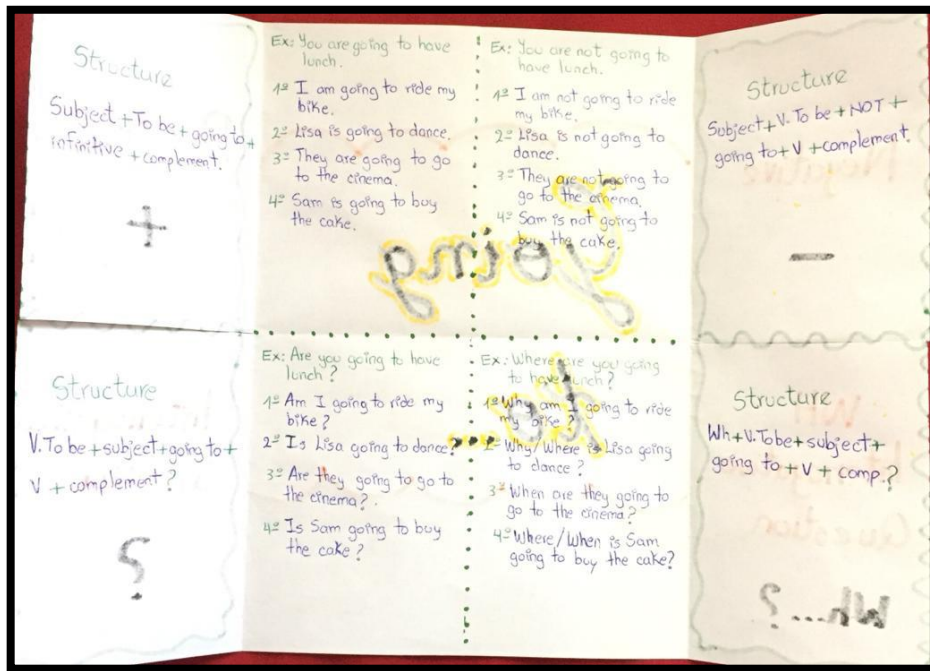 Structure
Subject + To be + going to +
infinitive + complement.
+
Ex: You are going to have
lunch.
1º I am going to ride my
bike.
2º Lisa is going to dance.
3º They are going to go
to the cinema.
4º Sam is going to buy
the cake.
Ex: You are not going to
have lunch.
1º I am not going to ride
my bike.
2º Lisa is not going to
dance.
3º They are not going to
go to the cinema.
4º Sam is not going to
buy the cake.
Structure
Subject + V. To be + NOT +
going to + V + complement.
-
Negative
going
Structure
V. To be + subject + going to +
V + complement?
?
Ex: Are you going to have
lunch?
1º Am I going to ride my
bike?
2º Is Lisa going to dance?
3º Are they going to go to
the cinema?
4º Is Sam going to buy
the cake?
Ex: Where are you going
to have lunch?
1º Why am I going to ride
my bike?
2º Why/Where is Lisa going
to dance?
3º When are they going to
go to the cinema?
4º Where/When is Sam
going to buy the cake?
to
Structure
Wh + V. To be + subject +
going to + V + comp.?
Question
Wh...?